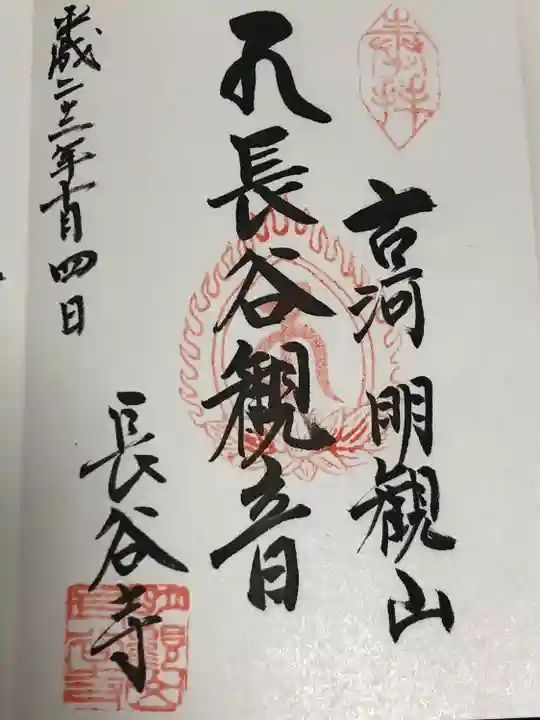 奉拝
古河 明観山
長谷観音
長谷寺
年十月四日